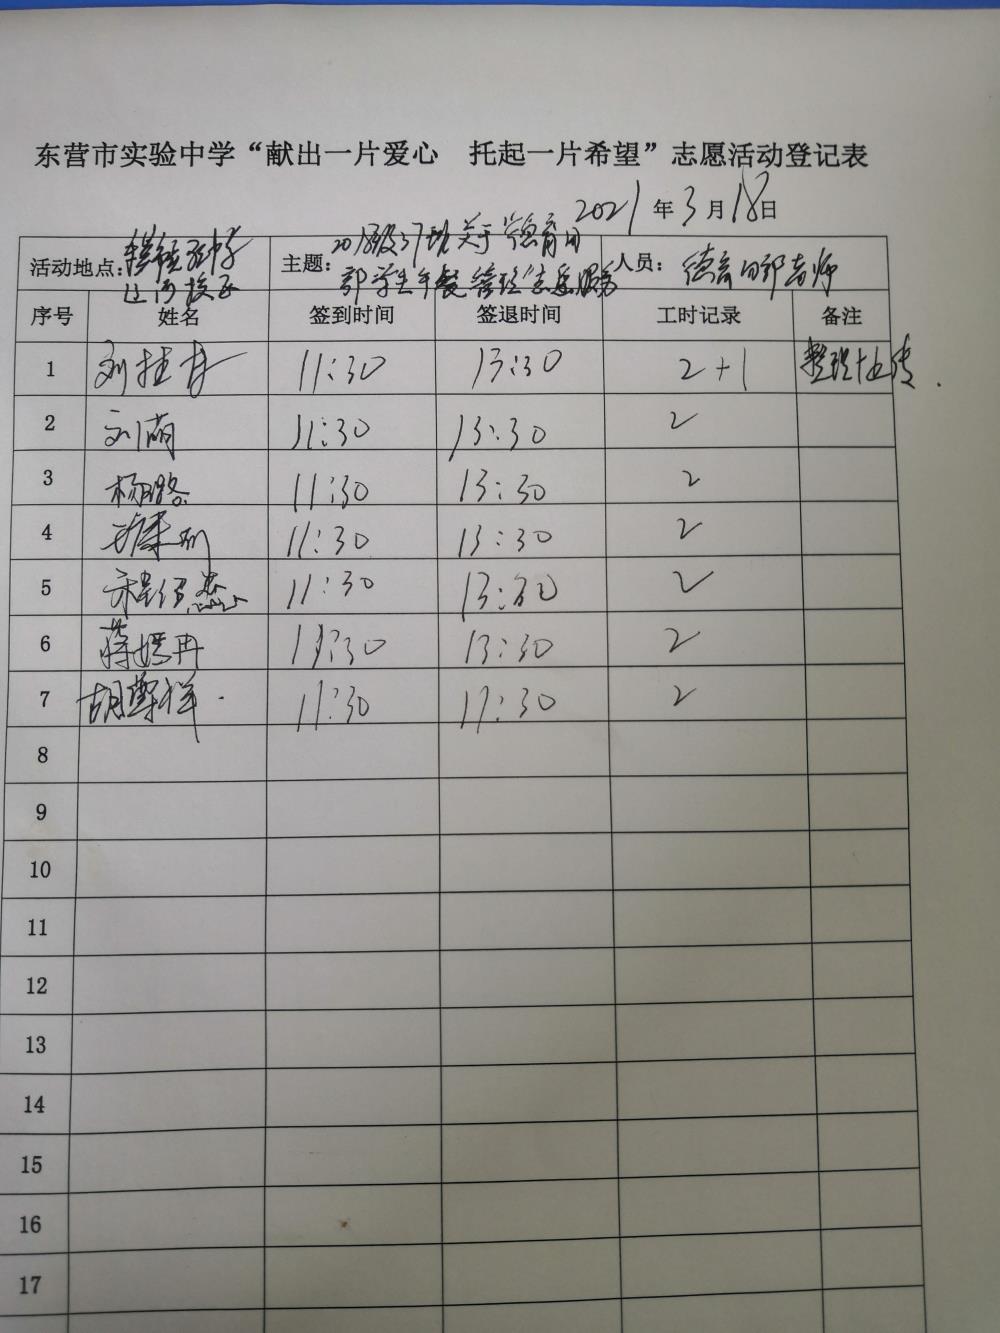 东营市实验中学“献出一片爱心 托起一片希望”志愿活动登记表
2021年3月18日
活动地点: 主题: 学生午餐管理志愿服务 人员: 德育 老师
序号 姓名 签到时间 签退时间 工时记录 备注
1 刘桂 11:30 13:30 2+1 整理
2 刘萌 11:30 13:30 2
3 杨璐 11:30 13:30 2
4 11:30 13:30 2
5 11:30 13:30 2
6 蒋嫣冉 11:30 13:30 2
7 胡 祥 11:30 17:30 2
8
9
10
11
12
13
14
15
16
17